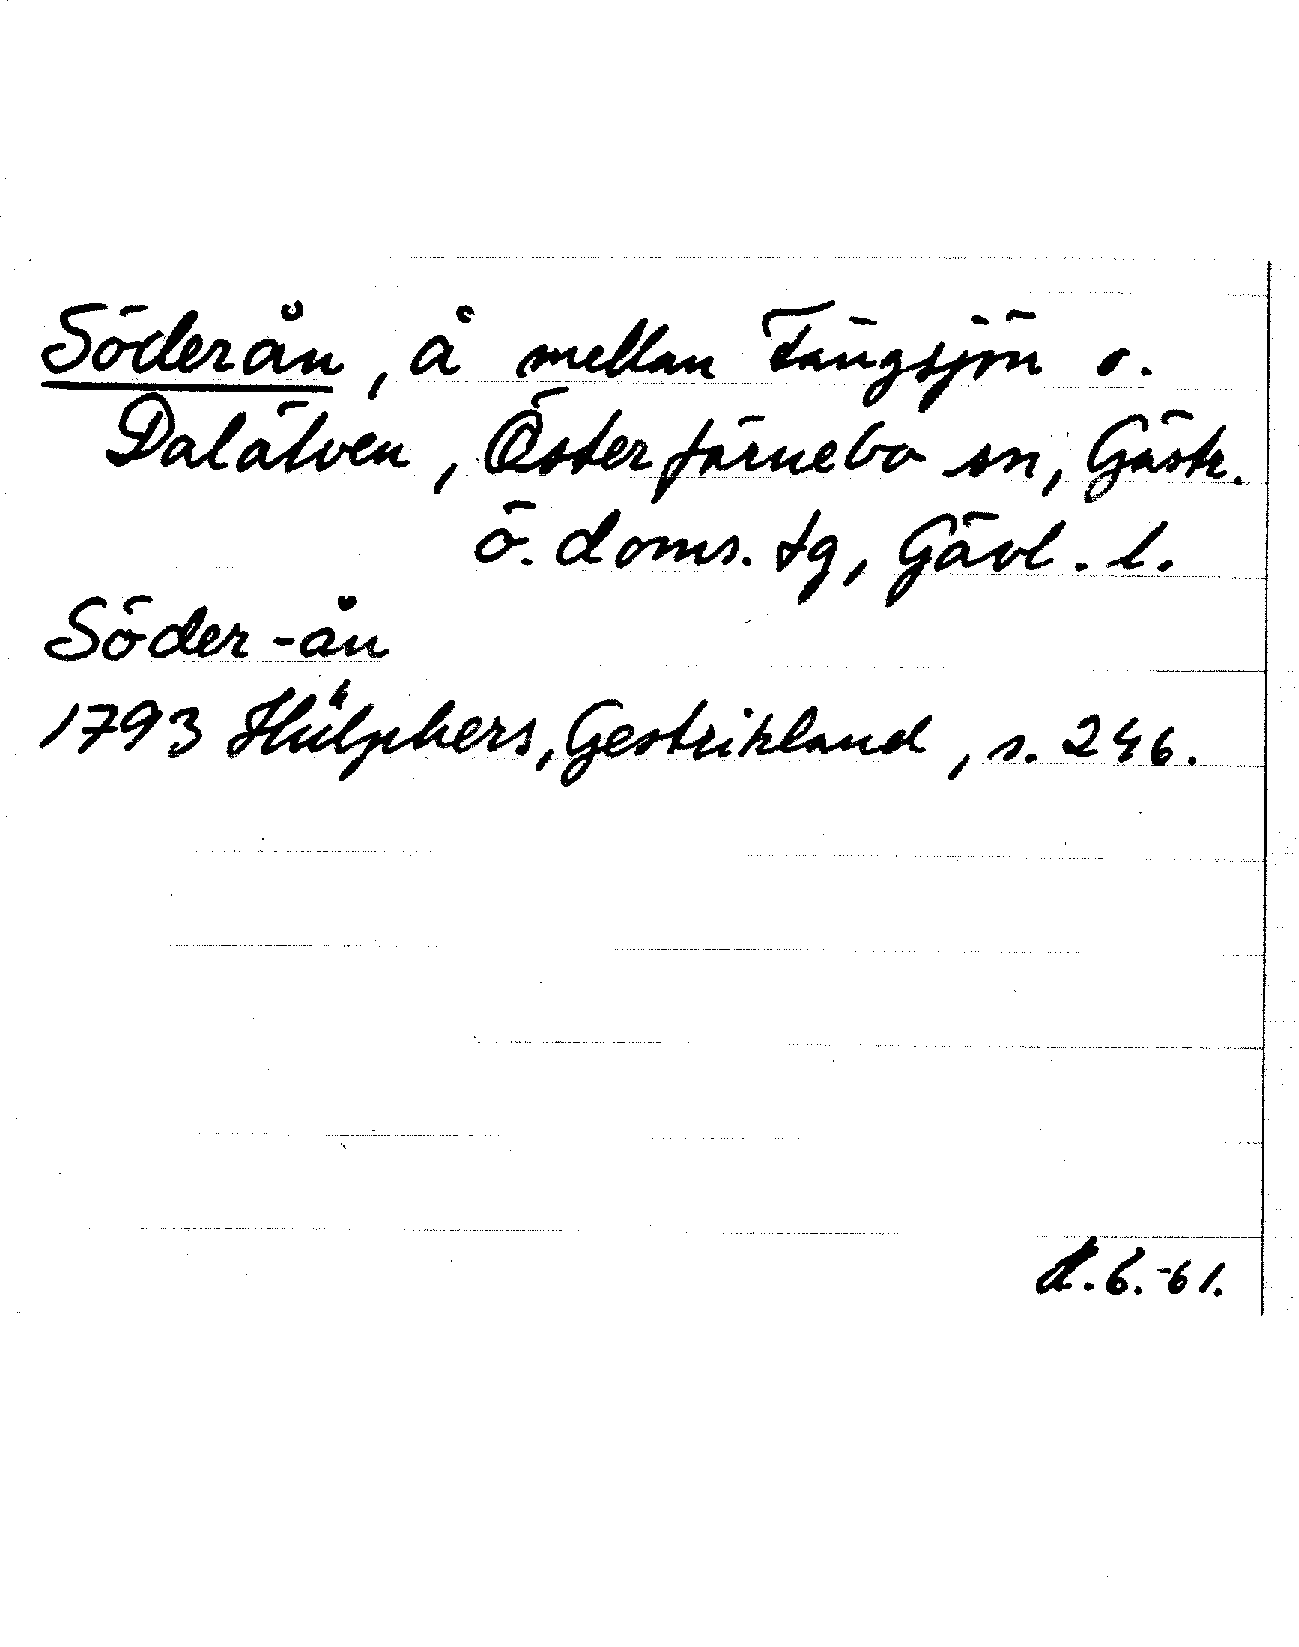 Söderån, å mellan Fängsjön o.
Dalälven, Österfärnebo sn, Gästr.
ö. doms. tg, Gävl. l.
Söder-ån
1793 Hülphers, Gestrikland, s. 246.
6.-61.